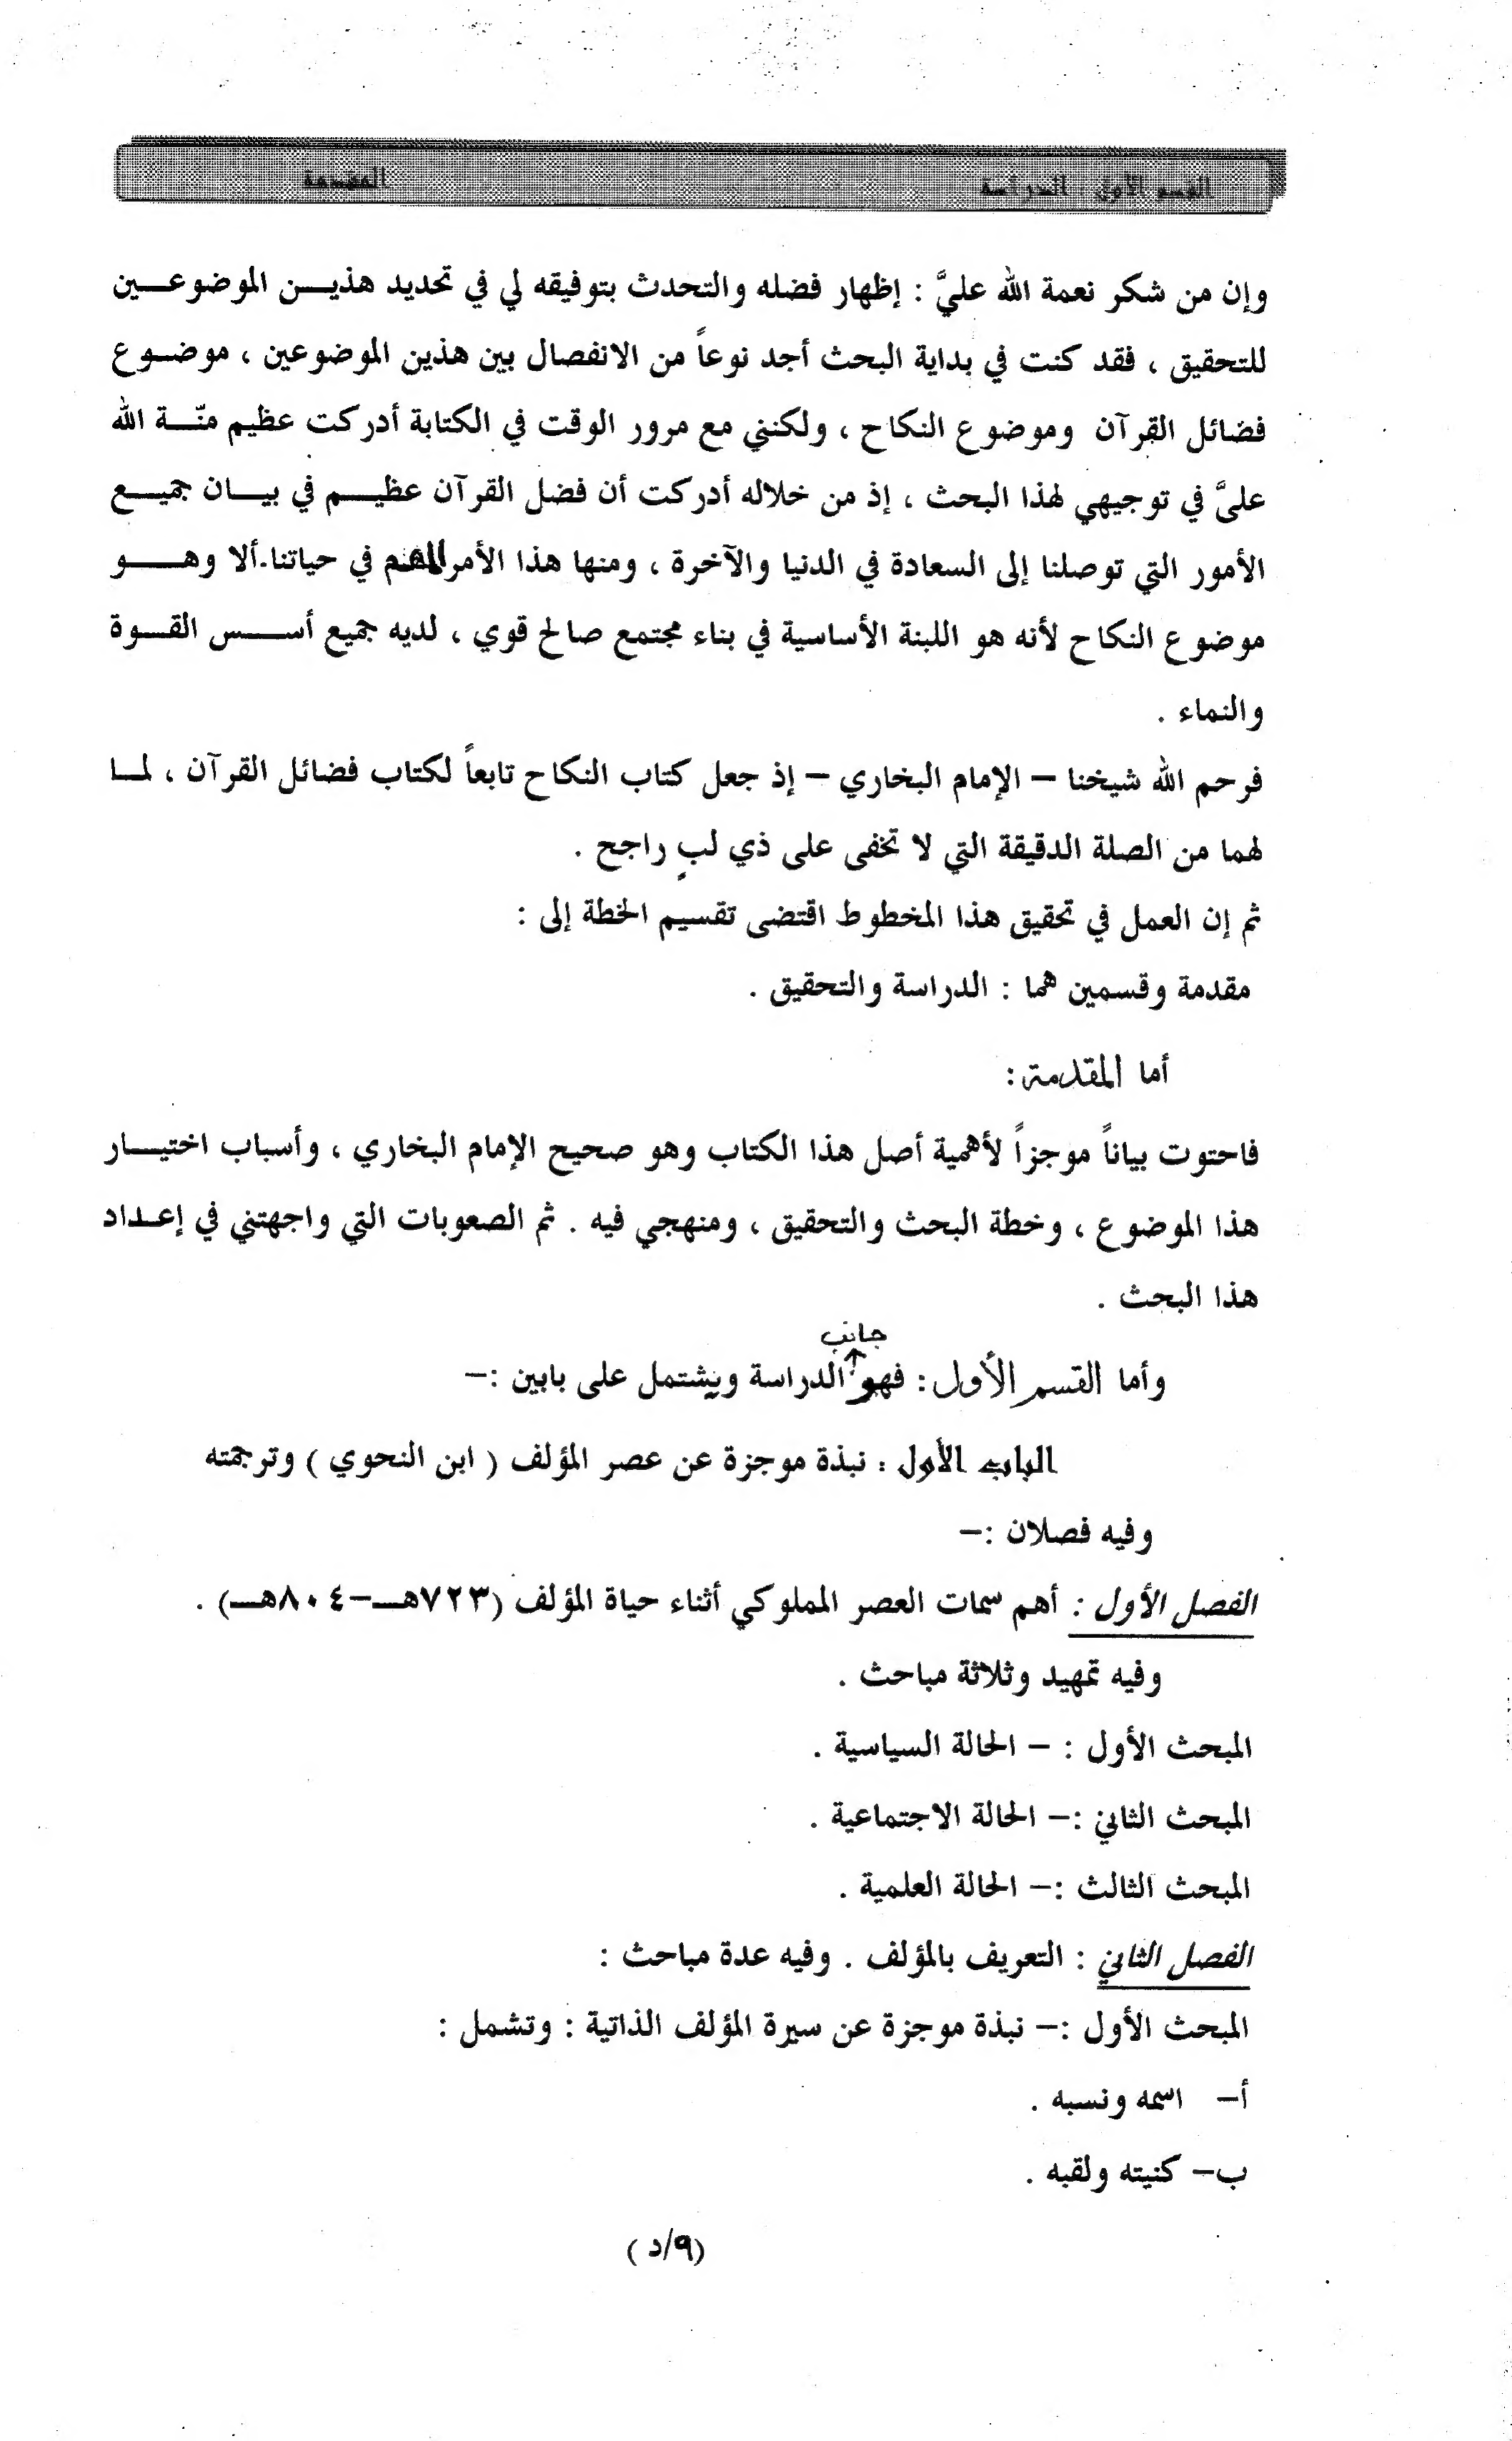 القسم الأول : الدراسة المقدمة
وإن من شكر نعمة الله عليَّ : إظهار فضله والتحدث بتوفيقه لي في تحديد هذيـــن الموضوعـــين
للتحقيق ، فقد كنت في بداية البحث أجد نوعاً من الانفصال بين هذين الموضوعين ، موضـوع
فضائل القرآن وموضوع النكاح ، ولكنني مع مرور الوقت في الكتابة أدركت عظيم منّـــة الله
عليَّ في توجيهي لهذا البحث ، إذ من خلاله أدركت أن فضل القرآن عظيـــم في بيـــان جميـــع
الأمور التي توصلنا إلى السعادة في الدنيا والآخرة ، ومنها هذا الأمر المهم في حياتنا.ألا وهـــــو
موضوع النكاح لأنه هو اللبنة الأساسية في بناء مجتمع صالح قوي ، لديه جميع أســـس القــوة
والنماء .
فرحم الله شيخنا – الإمام البخاري – إذ جعل كتاب النكاح تابعاً لكتاب فضائل القرآن ، لمــا
لهما من الصلة الدقيقة التي لا تخفى على ذي لبٍ راجح .
ثم إن العمل في تحقيق هذا المخطوط اقتضى تقسيم الخطة إلى :
مقدمة وقسمين هما : الدراسة والتحقيق .
أما المقدمة:
فاحتوت بياناً موجزاً لأهمية أصل هذا الكتاب وهو صحيح الإمام البخاري ، وأسباب اختيـــار
هذا الموضوع ، وخطة البحث والتحقيق ، ومنهجي فيه . ثم الصعوبات التي واجهتني في إعـداد
هذا البحث .
جانب
وأما القسم الأول: فهو الدراسة ويشتمل على بابين :–
الباب الأول : نبذة موجزة عن عصر المؤلف ( ابن النحوي ) وترجمته
وفيه فصلان :–
الفصل الأول : أهم سمات العصر المملوكي أثناء حياة المؤلف (٧٢٣هـــ–٨٠٤هـــ) .
وفيه تمهيد وثلاثة مباحث .
المبحث الأول : – الحالة السياسية .
المبحث الثاني :– الحالة الاجتماعية .
المبحث الثالث :– الحالة العلمية .
الفصل الثاني : التعريف بالمؤلف . وفيه عدة مباحث :
المبحث الأول :– نبذة موجزة عن سيرة المؤلف الذاتية : وتشمل :
أ– اسمه ونسبه .
ب– كنيته ولقبه .
(٩/د )